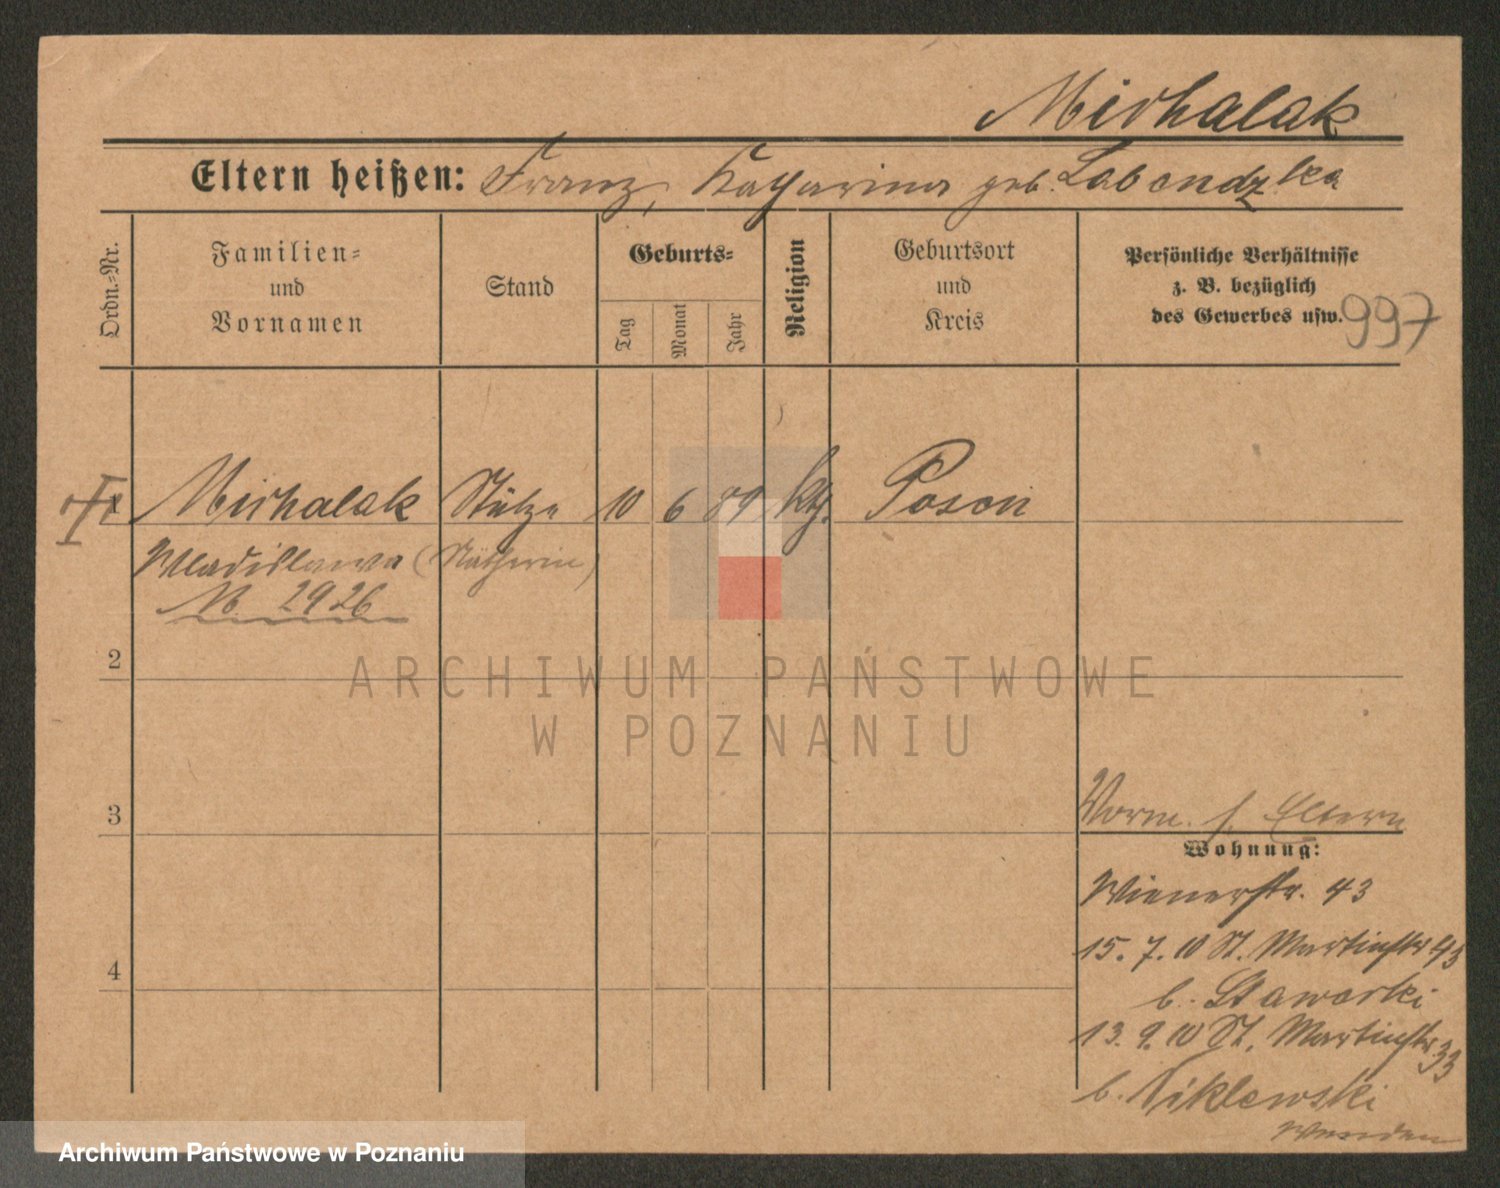 Michalak
Eltern heißen: Franz, Katharina geb. Labendzka
Ordn.-Nr.
Familien-
und
Vornamen
Stand
Geburts-
Tag
Monat
Jahr
Religion
Geburtsort
und
Kreis
Persönliche Verhältnisse
z. B. bezüglich
des Gewerbes usw.
997
Michalak Stütze 10 6 89 kth. Posen
Wladislawa (Nätherin)
No 2926
2
3
4
Vorm. s. Eltern
Wohnung:
Wienerstr. 43
15. 7. 10 St. Martinstr 43
b. Stawarski
13. 9. 10 St. Martinstr 33
b. Niklewski
ARCHIWUM PAŃSTWOWE
W POZNANIU
Archiwum Państwowe w Poznaniu